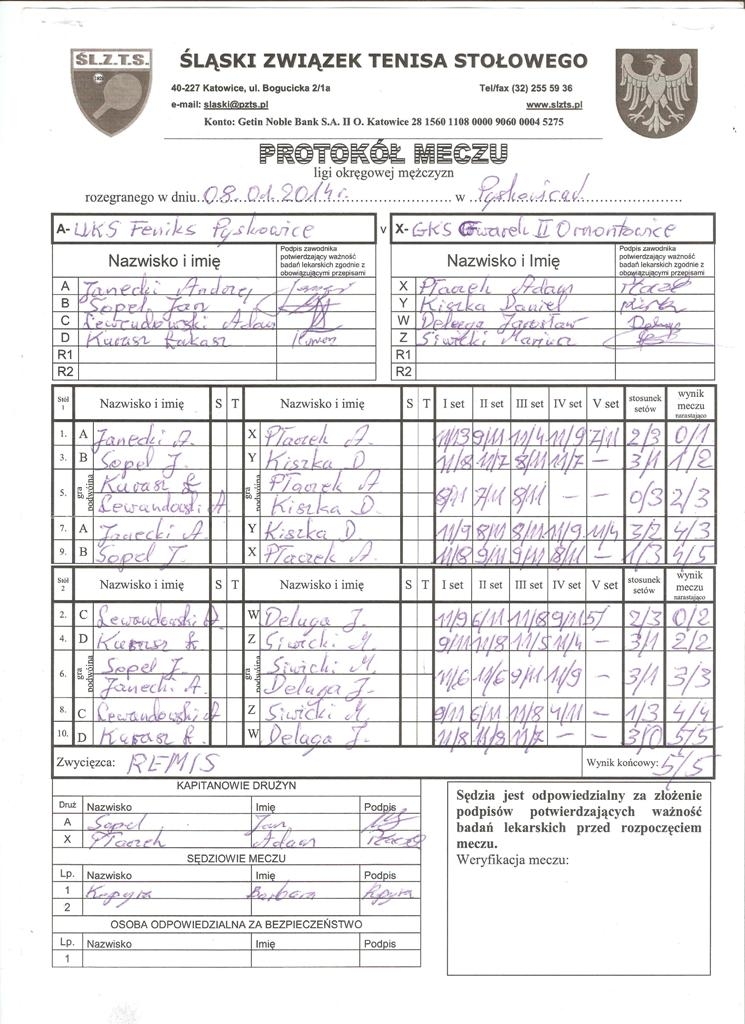 ŚL.Z.T.S.
ŚLĄSKI ZWIĄZEK TENISA STOŁOWEGO
40-227 Katowice, ul. Bogucicka 2/1a Tel/fax (32) 255 59 36
e-mail: slaski@pzts.pl www.slzts.pl
Konto: Getin Noble Bank S.A. II O. Katowice 28 1560 1108 0000 9060 0004 5275
PROTOKÓŁ MECZU
ligi okręgowej mężczyzn
rozegranego w dniu 08.01.2014r. w Pyskowicach
A- UKS Feniks Pyskowice v X- GKS Gwarek II Ornontowice
Nazwisko i imię Podpis zawodnika potwierdzający ważność badań lekarskich zgodnie z obowiązującymi przepisami Nazwisko i Imię Podpis zawodnika potwierdzający ważność badań lekarskich zgodnie z obowiązującymi przepisami
A Janecki Andrzej X Ptaczek Adam
B Sopel Jan Y Kiszka Daniel
C Lewandowski Adam W Deluga Jarosław
D Kurasz Łukasz Z Siwicki Mariusz
R1 R1
R2 R2
Stół 1 Nazwisko i imię S T Nazwisko i imię S T I set II set III set IV set V set stosunek setów wynik meczu narastająco
1. A Janecki A. X Ptaczek A. 11/13 9/11 11/4 11/9 7/11 2/3 0/1
3. B Sopel J. Y Kiszka D 11/8 11/7 8/11 11/7 – 3/1 1/2
5. gra podwójna Kurasz Ł Ptaczek A. 8/11 7/11 8/11 – – 0/3 2/3
Lewandowski A. Kiszka D.
7. A Janecki A. Y Kiszka D. 11/9 8/11 8/11 11/9 11/4 3/2 4/3
9. B Sopel J. X Ptaczek A. 11/8 9/11 9/11 8/11 – 1/3 4/5
Stół 2 Nazwisko i imię S T Nazwisko i imię S T I set II set III set IV set V set stosunek setów wynik meczu narastająco
2. C Lewandowski A W Deluga J. 11/9 6/11 11/8 9/11 5/ 2/3 0/2
4. D Kurasz Ł. Z Siwicki M. 9/11 11/8 11/5 11/4 – 3/1 2/2
6. gra podwójna Sopel J. gra podwójna Siwicki M. 11/6 11/6 9/11 11/9 – 3/1 3/3
Janecki A. Deluga J.
8. C Lewandowski A Z Siwicki M. 9/11 6/11 11/8 4/11 – 1/3 4/4
10. D Kurasz Ł. W Deluga J. 11/8 11/8 11/7 – – 3/0 5/5
Zwycięzca: REMIS Wynik końcowy: 5/5
KAPITANOWIE DRUŻYN
Druż Nazwisko Imię Podpis
A Sopel Jan
X Ptaczek Adam
SĘDZIOWIE MECZU
Lp. Nazwisko Imię Podpis
1 Kopyra Barbara Kopyra
2
OSOBA ODPOWIEDZIALNA ZA BEZPIECZEŃSTWO
Lp. Nazwisko Imię Podpis
1
Sędzia jest odpowiedzialny za złożenie
podpisów potwierdzających ważność
badań lekarskich przed rozpoczęciem
meczu.
Weryfikacja meczu: